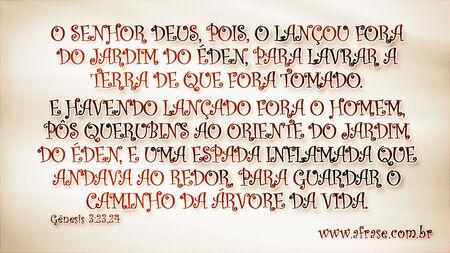 O SENHOR DEUS, POIS, O LANÇOU FORA
DO JARDIM DO ÉDEN, PARA LAVRAR A
TERRA DE QUE FORA TOMADO.
E HAVENDO LANÇADO FORA O HOMEM,
PÔS QUERUBINS AO ORIENTE DO JARDIM
DO ÉDEN, E UMA ESPADA INFLAMADA QUE
ANDAVA AO REDOR, PARA GUARDAR O
CAMINHO DA ÁRVORE DA VIDA.
Gênesis 3:23,24
www.afrase.com.br